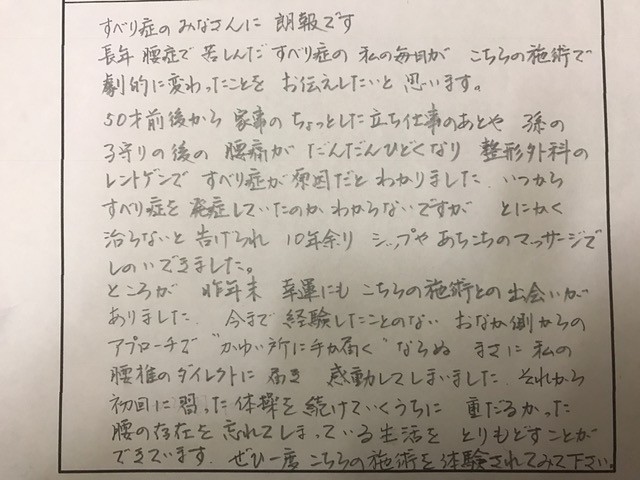 すべり症のみなさんに 朗報です
長年 腰症で苦しんだすべり症の 私の毎日が こちらの施術で
劇的に変わったことを お伝えしたいと思います。
50才前後から 家事のちょっとした立ち仕事のあとや 孫の
子守りの後の 腰痛が だんだんひどくなり 整形外科の
レントゲンで すべり症が原因だと わかりました. いつから
すべり症を発症していたのか わからないですが とにかく
治らないと告げられ 10年余り シップや あちこちのマッサージで
しのいできました。
ところが 昨年末 幸運にも こちらの施術との出会いが
ありました. 今まで経験したことのない おなか側からの
アプローチで "かゆい所に手が届く" ならぬ まさに 私の
腰椎のダイレクトに届き 感動してしまいました. それから
初回に習った体操を続けていくうちに 重だるかった
腰の存在を忘れてしまっている生活を とりもどすことが
できています. ぜひ一度 こちらの施術を体験されてみて下さい。